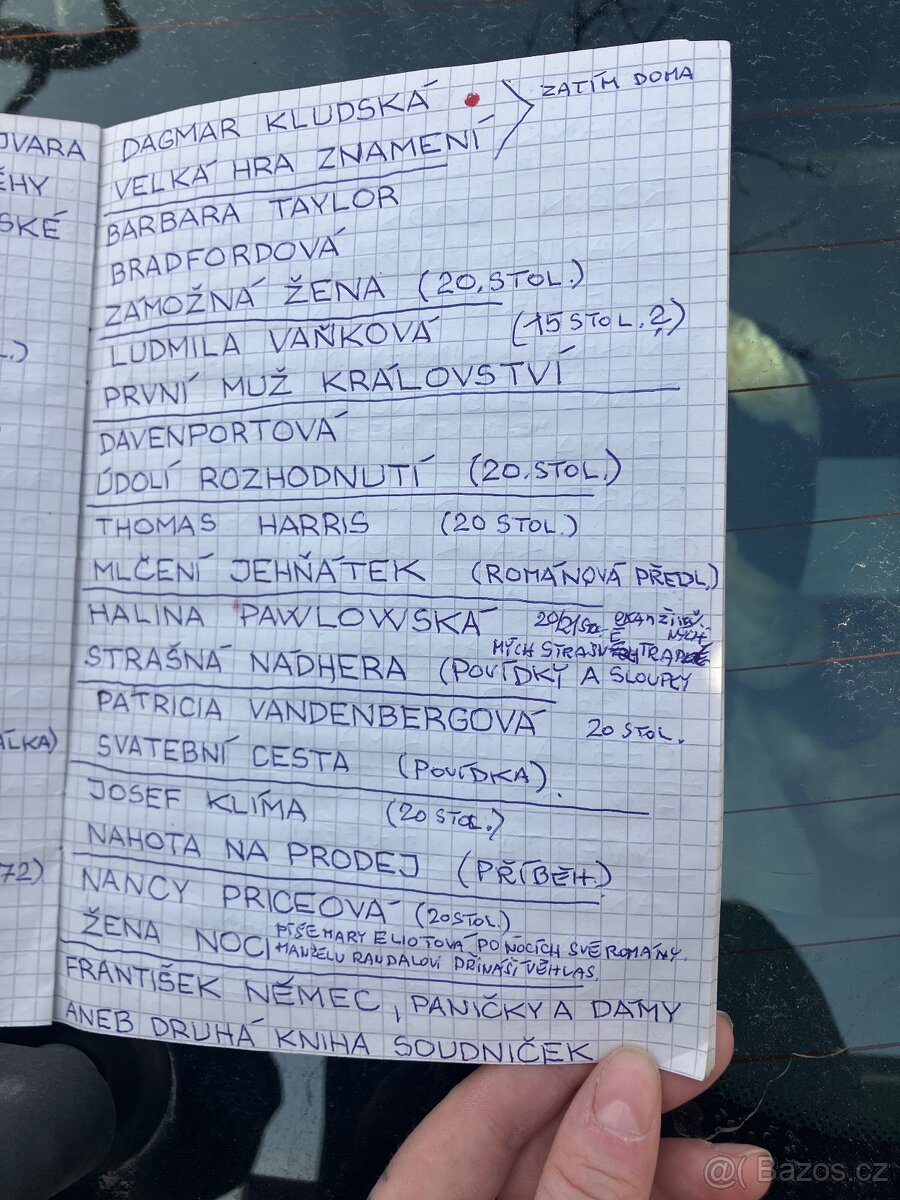 JVARA
ĚHY
SKÉ
.)
ÁLKA)
72)
DAGMAR KLUDSKÁ
VELKÁ HRA ZNAMENÍ
ZATÍM DOMA
BARBARA TAYLOR
BRADFORDOVÁ
ZÁMOŽNÁ ŽENA (20. STOL.)
LUDMILA VAŇKOVÁ (15 STOL. ?)
PRVNÍ MUŽ KRÁLOVSTVÍ
DAVENPORTOVÁ
ÚDOLÍ ROZHODNUTÍ (20. STOL.)
THOMAS HARRIS (20 STOL.)
MLČENÍ JEHŇÁTEK (ROMÁNOVÁ PŘEDL.)
HALINA PAWLOWSKÁ
STRAŠNÁ NÁDHERA (POVÍDKY A SLOUPKY
PATRICIA VANDENBERGOVÁ 20 STOL.
SVATEBNÍ CESTA (POVÍDKA).
JOSEF KLÍMA (20 STOL.)
NAHOTA NA PRODEJ (PŘÍBĚH)
NANCY PRICEOVÁ (20 STOL.)
ŽENA NOCI PÍŠE MARY ELIOTOVÁ PO NOCÍCH SVÉ ROMÁNY.
MANŽELU RANDALOVI PŘINÁŠÍ VĚHLAS.
FRANTIŠEK NĚMEC, PANIČKY A DÁMY
ANEB DRUHÁ KNIHA SOUDNIČEK
@ Bazos.cz